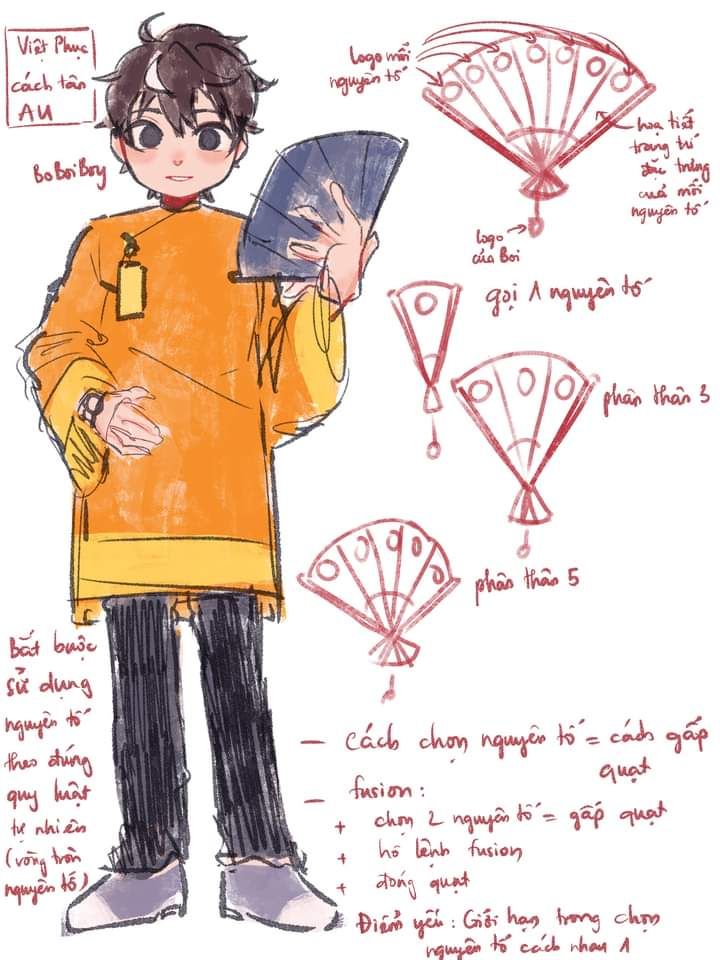 Việt Phục
cách tân
AU
BoBoiBoy
logo mỗi
nguyên tố
hoạ tiết
trang trí
đặc trưng
của mỗi
nguyên tố
logo
của Boi
gọi 1 nguyên tố
phân thân 3
phân thân 5
Bắt buộc
sử dụng
nguyên tố
theo đúng
quy luật
tự nhiên
(vòng tròn
nguyên tố)
— Cách chọn nguyên tố = cách gấp
quạt
— fusion:
+ chọn 2 nguyên tố = gấp quạt
+ hô lệnh fusion
+ đóng quạt
Điểm yếu: Giới hạn trong chọn
nguyên tố cách nhau 1